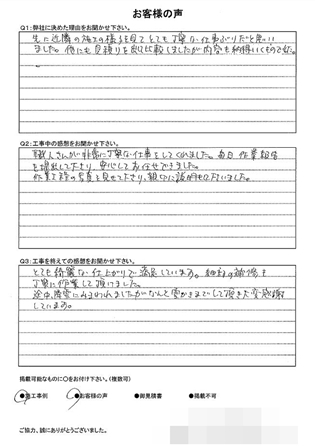 お客様の声
Q1：弊社に決めた理由をお聞かせ下さい。
先に近隣の施工の様子を見てとても丁寧な仕事ぶりだと思い
ました。他にも見積りを出し比較しましたが内容も納得いくもので
Q2：工事中の感想をお聞かせ下さい。
職人さんが非常に丁寧な仕事をしてくれました。毎日作業報告
を提出して下さり、安心してお任せできました。
作業工程の写真を見せて下さり、親切に説明も
Q3：工事を終えての感想をお聞かせ下さい。
とても綺麗な仕上がりで満足しています。細かな補修も
丁寧に作業して頂けました。
途中、
しています。
掲載可能なものに○をお付け下さい。（複数可）
●施工事例 ●お客様の声 ●御見積書 ●掲載不可
ご協力、誠にありがとうございました。